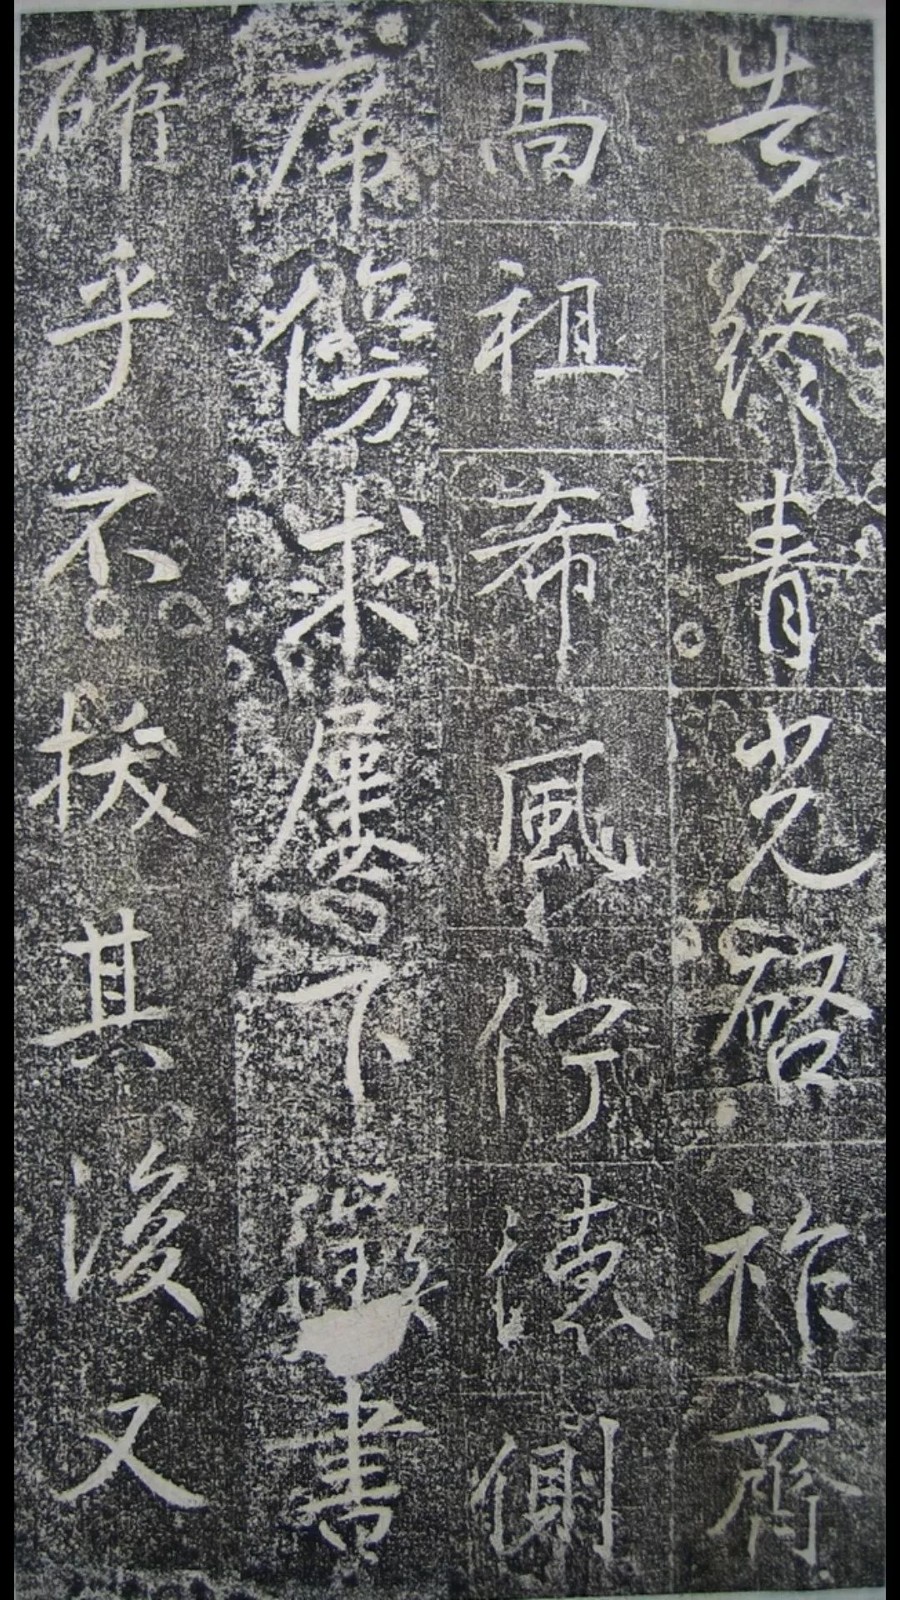 告終青光啓祚齊
高祖希風佇德側
席傍求屢下徵書
確乎不拔其後又